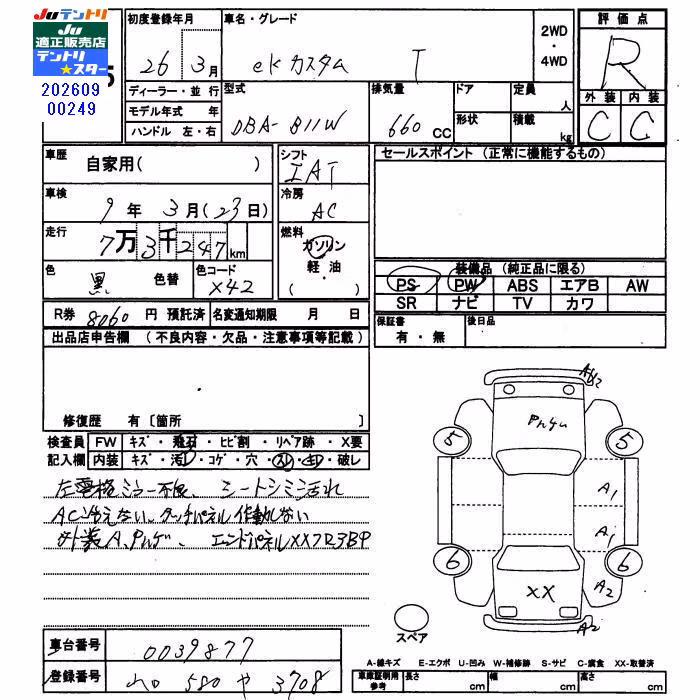 Juテントリ
Ju
適正販売店
テントリ
★スター
202609
00249
5
初度登録年月
26 3月
車名・グレード
eKカスタム T
2WD
・
4WD
評価点
R
外装 内装
C C
ディーラー・並行
モデル年式 年
ハンドル 左・右
型式
DBA-B11W
排気量
660 CC
ドア
形状
定員 人
積載 kg
車歴
自家用( )
シフト
IAT
セールスポイント (正常に機能するもの)
車検
9年 3月(23日)
冷房
AC
走行
7万3千247km
燃料
ガソリン
軽・油
( )
色
黒 色替
色コード
X42
装備品 (純正品に限る)
PS PW ABS エアB AW
SR ナビ TV カワ
R券 8060円 預託済
名変通知期限 月 日
保証書
有・無
後日品
出品店申告欄 (不良内容・欠品・注意事項等記載)
修復歴 有〔箇所 〕
検査員 FW キズ・飛石・ヒビ割・リペア跡・X要
記入欄 内装 キズ・汚レ・コゲ・穴・スレ・キレ・破レ
左電格ミラー不良、シートシミ汚れ
AC冷えない、タッチパネル作動しない
外装A、Pハゲ、エンドパネルXXフロアBP
A2
Pハゲ
5 5
A1
A1
6 6
XX
A2
A2
スペア
車台番号 0039877
登録番号 580 や 3708
A-線キズ E-エクボ U-凹み W-補修跡 S-サビ C-腐食 XX-取替済
車庫証明用
参考
長さ cm 幅 cm 高さ cm